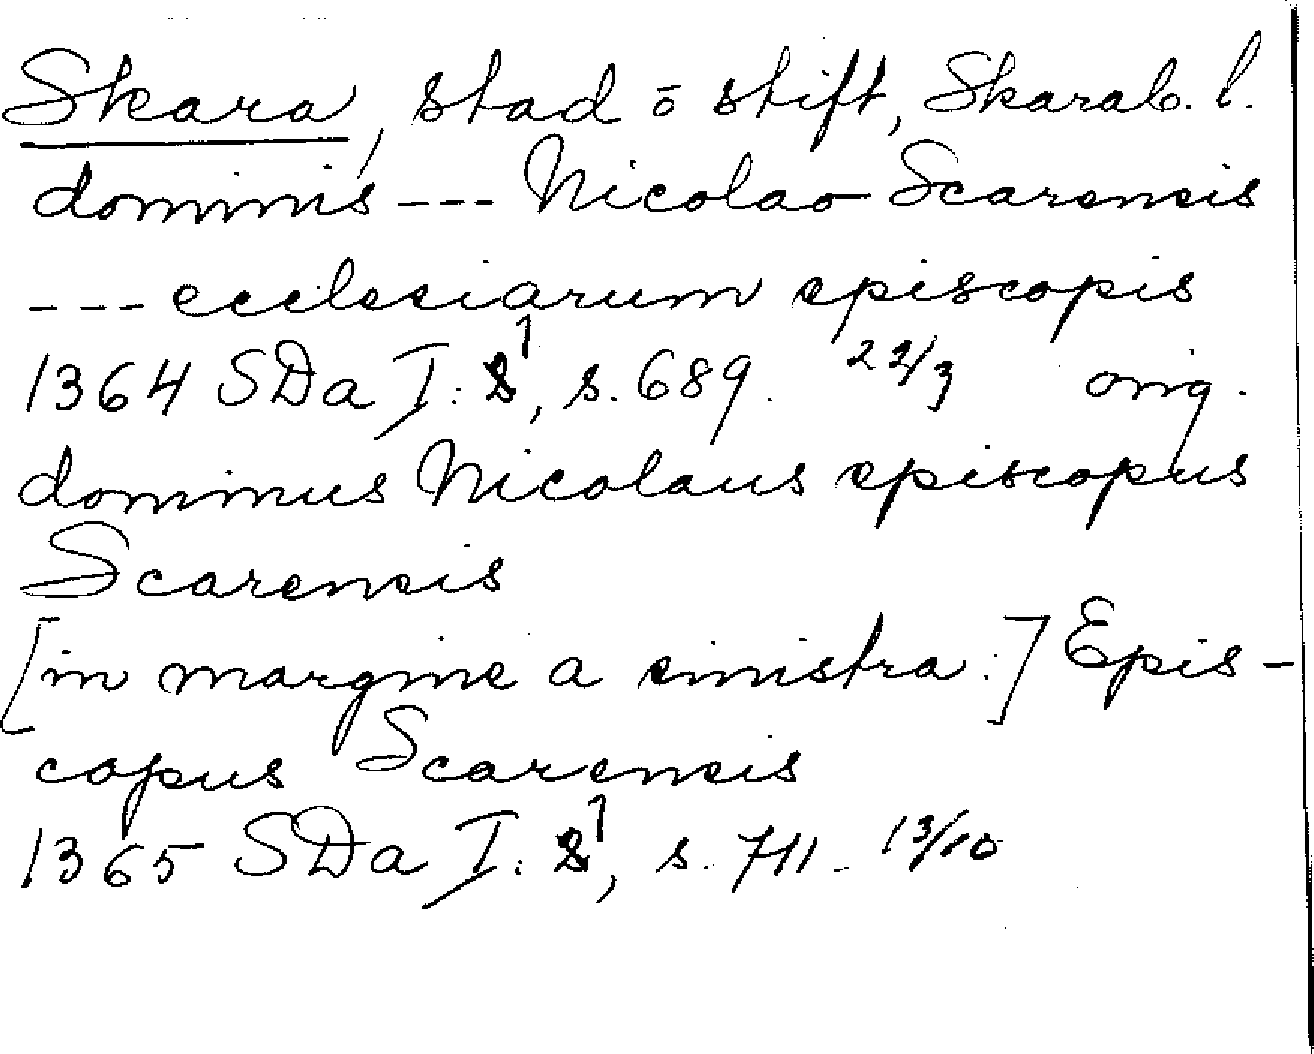 Skara, stad o stift, Skarab. l.
dominis --- Nicolao Scarensis
--- ecclesiarum episcopis
1364 SDa I: 1, s. 689. 22/3 orig.
dominus Nicolaus episcopus
Scarensis
[in margine a sinistra:] Epis-
copus Scarensis
1365 SDa I: 1, s. 711. 13/10